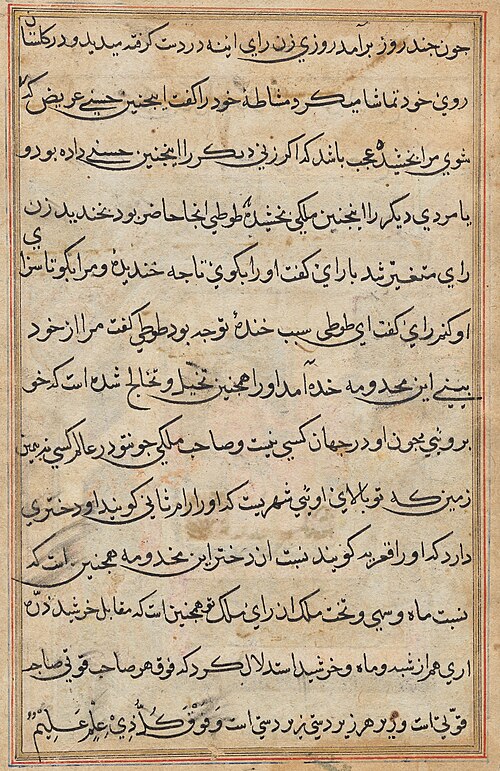 چون چند روز برآمد روزی زن رای اینه در دست کرفته میدید و در کلستان
روی خود تماشا میکرد مشاطهٔ خود را کفت اینچنین حسنی عریض که
شوی مرا بخشیده عجب باشد که اکر زنی دیکر را اینچنین حسنی داده بود و
یا مردی دیکر را اینچنین ملکی بخشیدهٔ طوطی انجا حاضر بود بخندید زن
رای متغیّر شد با رای کفت او را بکوی تا چه خندیدهٔ و مرا بکو تا سزا
او کنم رای کفت ای طوطی سبب خندهٔ تو چه بود طوطی کفت مرا از خود
بینی این مخدومه خنده آمد او را همچنین تخیل و تخالج شده است که خو
برویی چون او در جهان کسی نیست و صاحب ملکی چو تو در عالم کسی نه بدین
زمین که تو بالای اویی شهریست که او را رام کویند او دختری
دارد که او را کویند نسبت ان دختر این مخدومه همچنین است که
نسبت ماه و سهی و تخت ملک ان رای ملک تو همچنین است که مقابل خرشید ذره
اری هم از شبه و ماه و خرشید استدلال کرد که فوق هر صاحب قوتی صاحب
قوّتی است و زبر هر زبردستی زبردستی است وَفَوْقَ كُلِّ ذِي عِلْمٍ عَلِيمٌ